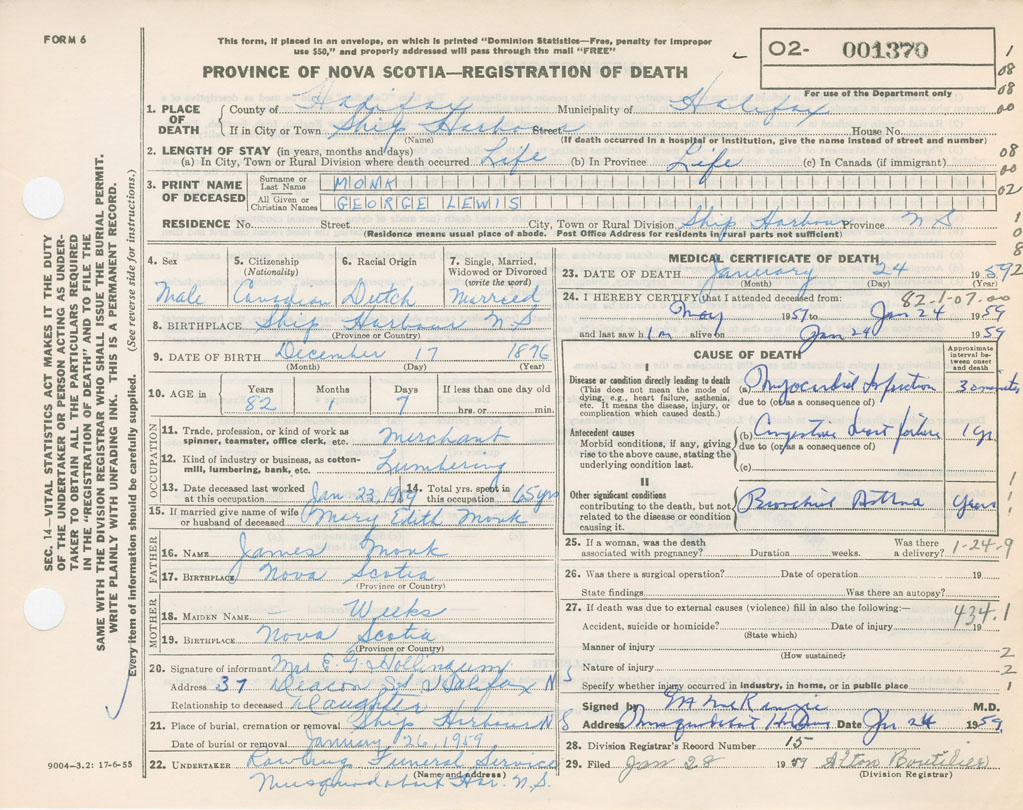 FORM 6
This form, if placed in an envelope, on which is printed "Dominion Statistics—Free, penalty for improper
use $50," and properly addressed will pass through the mail "FREE"
PROVINCE OF NOVA SCOTIA—REGISTRATION OF DEATH
O2- 001370
For use of the Department only
1
08
08
00
08
00
02
1
0
8
2
SEC. 14—VITAL STATISTICS ACT MAKES IT THE DUTY
OF THE UNDERTAKER OR PERSON ACTING AS UNDER-
TAKER TO OBTAIN ALL THE PARTICULARS REQUIRED
IN THE "REGISTRATION OF DEATH" AND TO FILE THE
SAME WITH THE DIVISION REGISTRAR WHO SHALL ISSUE THE BURIAL PERMIT.
WRITE PLAINLY WITH UNFADING INK. THIS IS A PERMANENT RECORD.
Every item of information should be carefully supplied. (See reverse side for instructions.)
1. PLACE OF DEATH County of Halifax Municipality of Halifax
If in City or Town Ship Harbour Street House No.
(Name) (If death occurred in a hospital or institution, give the name instead of street and number)
2. LENGTH OF STAY (in years, months and days)
(a) In City, Town or Rural Division where death occurred Life (b) In Province Life (c) In Canada (if immigrant)
3. PRINT NAME OF DECEASED Surname or Last Name MONK
All Given or Christian Names GEORGE LEWIS
RESIDENCE No. Street City, Town or Rural Division Ship Harbour Province N S
(Residence means usual place of abode. Post Office Address for residents in rural parts not sufficient)
4. Sex 5. Citizenship (Nationality) 6. Racial Origin 7. Single, Married, Widowed or Divorced (write the word)
Male Canadian Dutch Married
8. BIRTHPLACE Ship Harbour N S
(Province or Country)
9. DATE OF BIRTH December 17 1876
(Month) (Day) (Year)
10. AGE in Years Months Days If less than one day old
82 1 7 hrs. or min.
OCCUPATION
11. Trade, profession, or kind of work as spinner, teamster, office clerk, etc. Merchant
12. Kind of industry or business, as cotton-mill, lumbering, bank, etc. Lumbering
13. Date deceased last worked at this occupation Jan 23, 1959 14. Total yrs. spent in this occupation 65 yrs
15. If married give name of wife or husband of deceased Mary Edith Monk
FATHER
16. NAME James Monk
17. BIRTHPLACE Nova Scotia
(Province or Country)
MOTHER
18. MAIDEN NAME — Weeks
19. BIRTHPLACE Nova Scotia
(Province or Country)
20. Signature of informant Mrs E G Hollingum
Address 37 Deacon St Halifax N S
Relationship to deceased Daughter
21. Place of burial, cremation or removal Ship Harbour N S
Date of burial or removal January 26, 1959
22. UNDERTAKER Funeral Service
(Name and address)
Musquodoboit Har. N.S.
9004—3.2: 17-6-55
MEDICAL CERTIFICATE OF DEATH
23. DATE OF DEATH January 24 1959
(Month) (Day) (Year)
82-1-07-00
24. I HEREBY CERTIFY that I attended deceased from:
May 1957 to Jan 24 1959
and last saw him alive on Jan 24 1959
CAUSE OF DEATH
Approximate interval between onset and death
I
Disease or condition directly leading to death
(This does not mean the mode of dying, e.g., heart failure, asthenia, etc. It means the disease, injury, or complication which caused death.)
(a) Myocardial Infarction 30 minutes
due to (or as a consequence of)
Antecedent causes
Morbid conditions, if any, giving rise to the above cause, stating the underlying condition last.
(b) Congestive heart failure 1 yr
due to (or as a consequence of)
(c)
II
Other significant conditions
contributing to the death, but not related to the disease or condition causing it.
Bronchial Asthma Years
1
1
1
25. If a woman, was the death associated with pregnancy? Duration weeks. Was there a delivery? 1-24-9
26. Was there a surgical operation? Date of operation 19
State findings Was there an autopsy?
27. If death was due to external causes (violence) fill in also the following:—
434.1
Accident, suicide or homicide? Date of injury 19
(State which)
Manner of injury 2
(How sustained)
Nature of injury 2
Specify whether injury occurred in industry, in home, or in public place 1
Signed by McKenzie M.D.
Address Musquodoboit Date Jan 24 1959
28. Division Registrar's Record Number 15
29. Filed Jan 28 1959 Alton Boutilier
(Division Registrar)